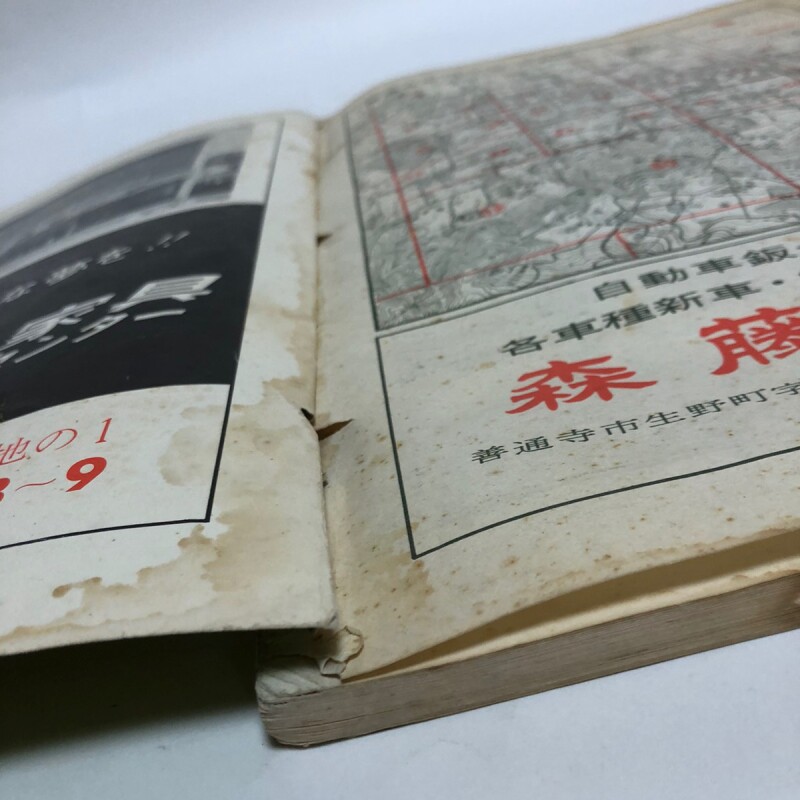 な夢を…
家具
ンター
地の1
3～9
自動車鈑
各車種新車・
森藤
善通寺市生野町字